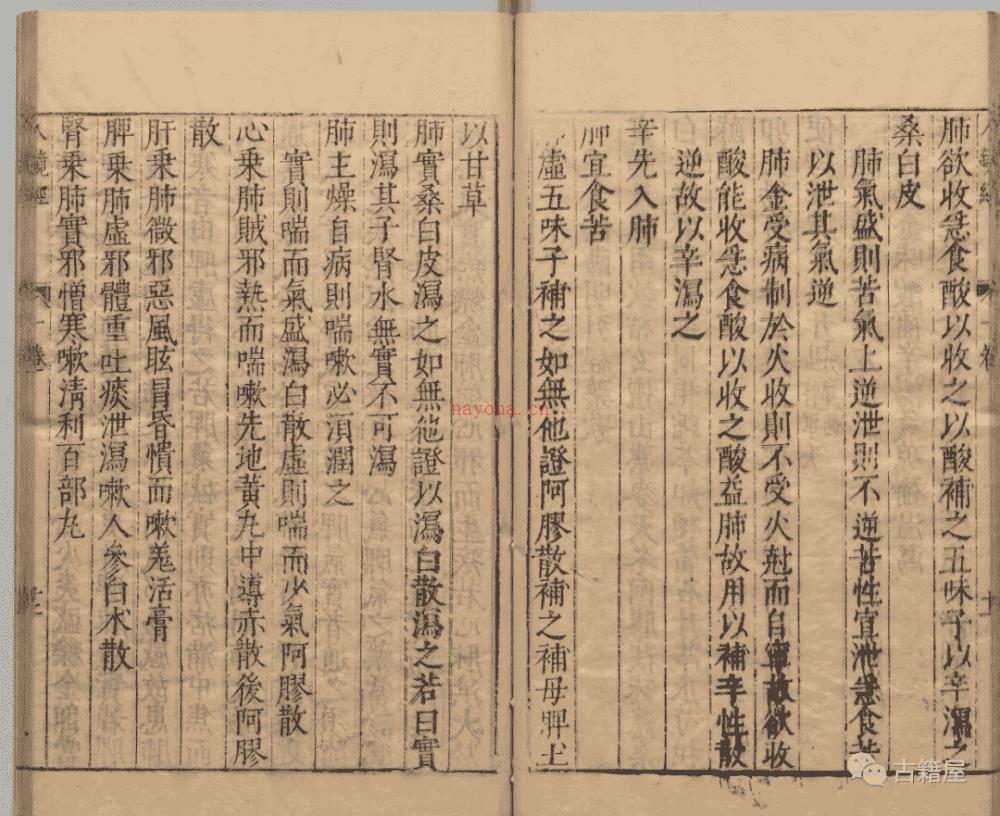 肺欲收急食酸以收之以酸補之五味子以辛瀉之
桑白皮
肺氣盛則苦氣上逆泄則不逆苦性宜泄急食苦
以泄其氣逆
肺金受病制於火收則不受火尅而自寧故欲收
酸能收急食酸以收之酸益肺故用以補辛性散
逆故以辛瀉之
辛先入肺
肺宜食苦
虛五味子補之如無他證阿膠散補之補母脾土
以甘草
肺實桑白皮瀉之如無他證以瀉白散瀉之若曰實
則瀉其子腎水無實不可瀉
肺主燥自病則喘嗽必須潤之
實則喘而氣盛瀉白散虛則喘而少氣阿膠散
心乗肺賊邪熱而喘嗽先地黃丸中導赤散後阿膠
散
肝乗肺微邪惡風眩冒昏憒而嗽羗活膏
脾乗肺虛邪體重吐痰泄瀉嗽人參白术散
腎乗肺實邪憎寒嗽清利百部丸
鏡經
卷
nayona.cn
古籍屋